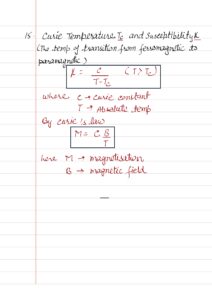 15 Curie Temperature Tc and Susceptibility χ
(The temp of transition from ferromagnetic to
paramagnetic)
χ = C / (T-Tc) (T > Tc)
where C → Curie constant
T → Absolute temp
By Curie's law
M = C B/T
here M → magnetisation
B → magnetic field